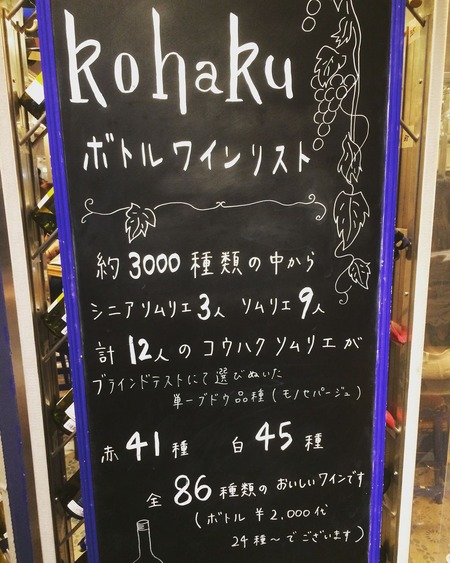 kohaku
ボトルワインリスト
約3000種類の中から
シニアソムリエ3人 ソムリエ9人
計12人のコウハクソムリエが
ブラインドテストにて選びぬいた
単一ブドウ品種(モノセパージュ)
赤41種 白45種
全86種類のおいしいワインです
(ボトル¥2,000代
24種~でございます)